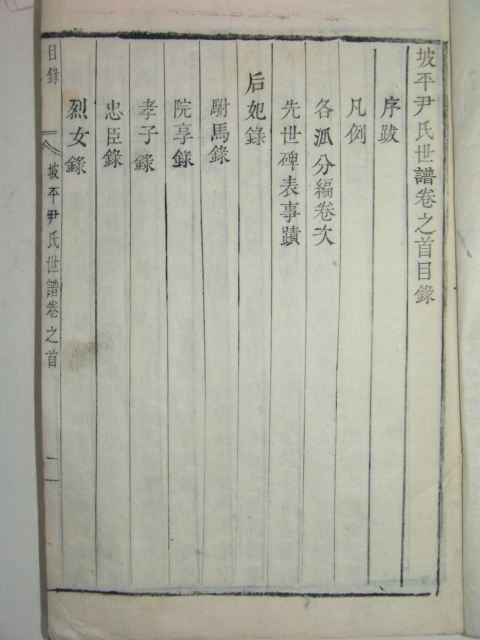 坡平尹氏世譜卷之首目錄
序跋
凡例
各派分編卷次
先世碑表事蹟
后妃錄
駙馬錄
院享錄
孝子錄
忠臣錄
烈女錄
目錄
坡平尹氏世譜卷之首
二